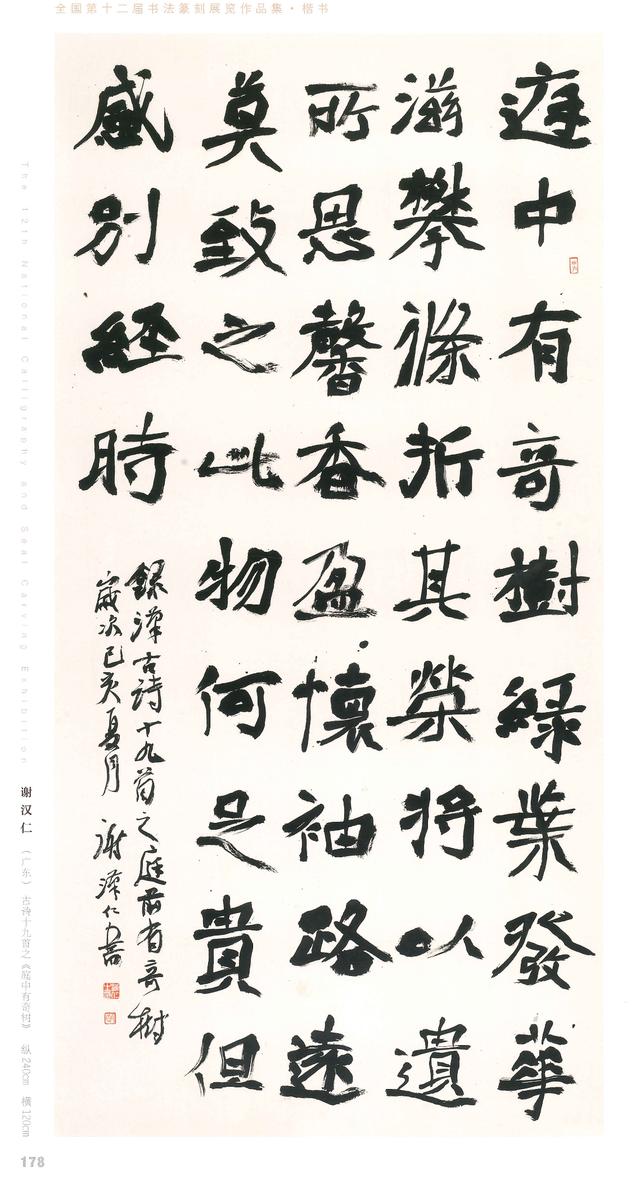 全国第十二届书法篆刻展览作品集·楷书
庭中有奇樹緑葉發華
滋攀條折其榮將以遺
所思馨香盈懷袖路遠
莫致之此物何足貴但
感別經時
録漢古詩十九首之庭前有奇樹
歲次己亥夏月 谢漢仁书
The 12th National Calligraphy and Seal Carving Exhibition
谢汉仁（广东） 古诗十九首之《庭中有奇树》 纵240cm 横120cm
178